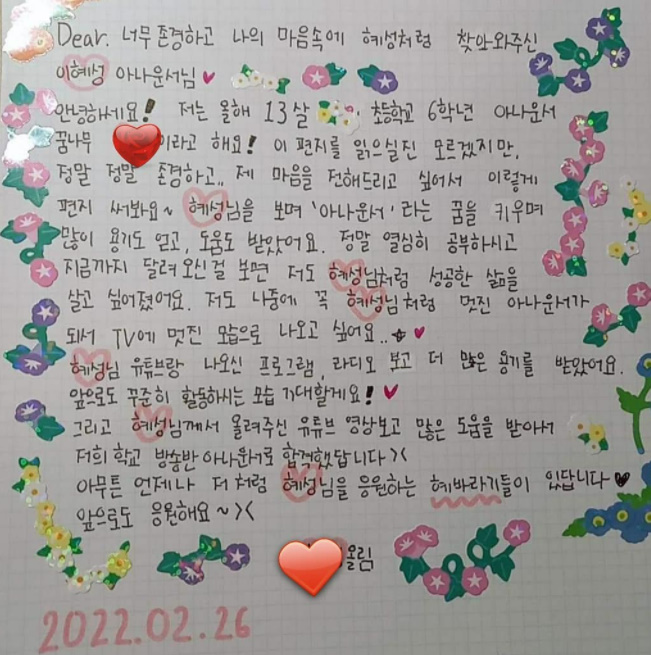 Dear. 너무 존경하고 나의 마음속에 혜성처럼 찾아와주신
이혜성 아나운서님♥
안녕하세요! 저는 올해 13살 초등학교 6학년 아나운서
꿈나무 이라고 해요! 이 편지를 읽으실진 모르겠지만,
정말 정말 존경하고.. 제 마음을 전해드리고 싶어서 이렇게
편지 써봐요~ 혜성님을 보며 '아나운서' 라는 꿈을 키우며
많이 용기도 얻고, 도움도 받았어요. 정말 열심히 공부하시고
지금까지 달려 오신 걸 보면 저도 혜성님처럼 성공한 삶을
살고 싶어졌어요. 저도 나중에 꼭 혜성님처럼 멋진 아나운서가
되서 TV에 멋진 모습으로 나오고 싶어요..★♥
혜성님 유튜브랑 나오신 프로그램, 라디오 보고 더 많은 용기를 받았어요.
앞으로도 꾸준히 활동하시는 모습 기대할게요!♥
그리고 혜성님께서 올려주신 유튜브 영상보고 많은 도움을 받아서
저희 학교 방송반 아나운서로 합격했답니다><
아무튼 언제나 저처럼 혜성님을 응원하는 혜바라기들이 있답니다♥
앞으로도 응원해요~><
올림
2022.02.26